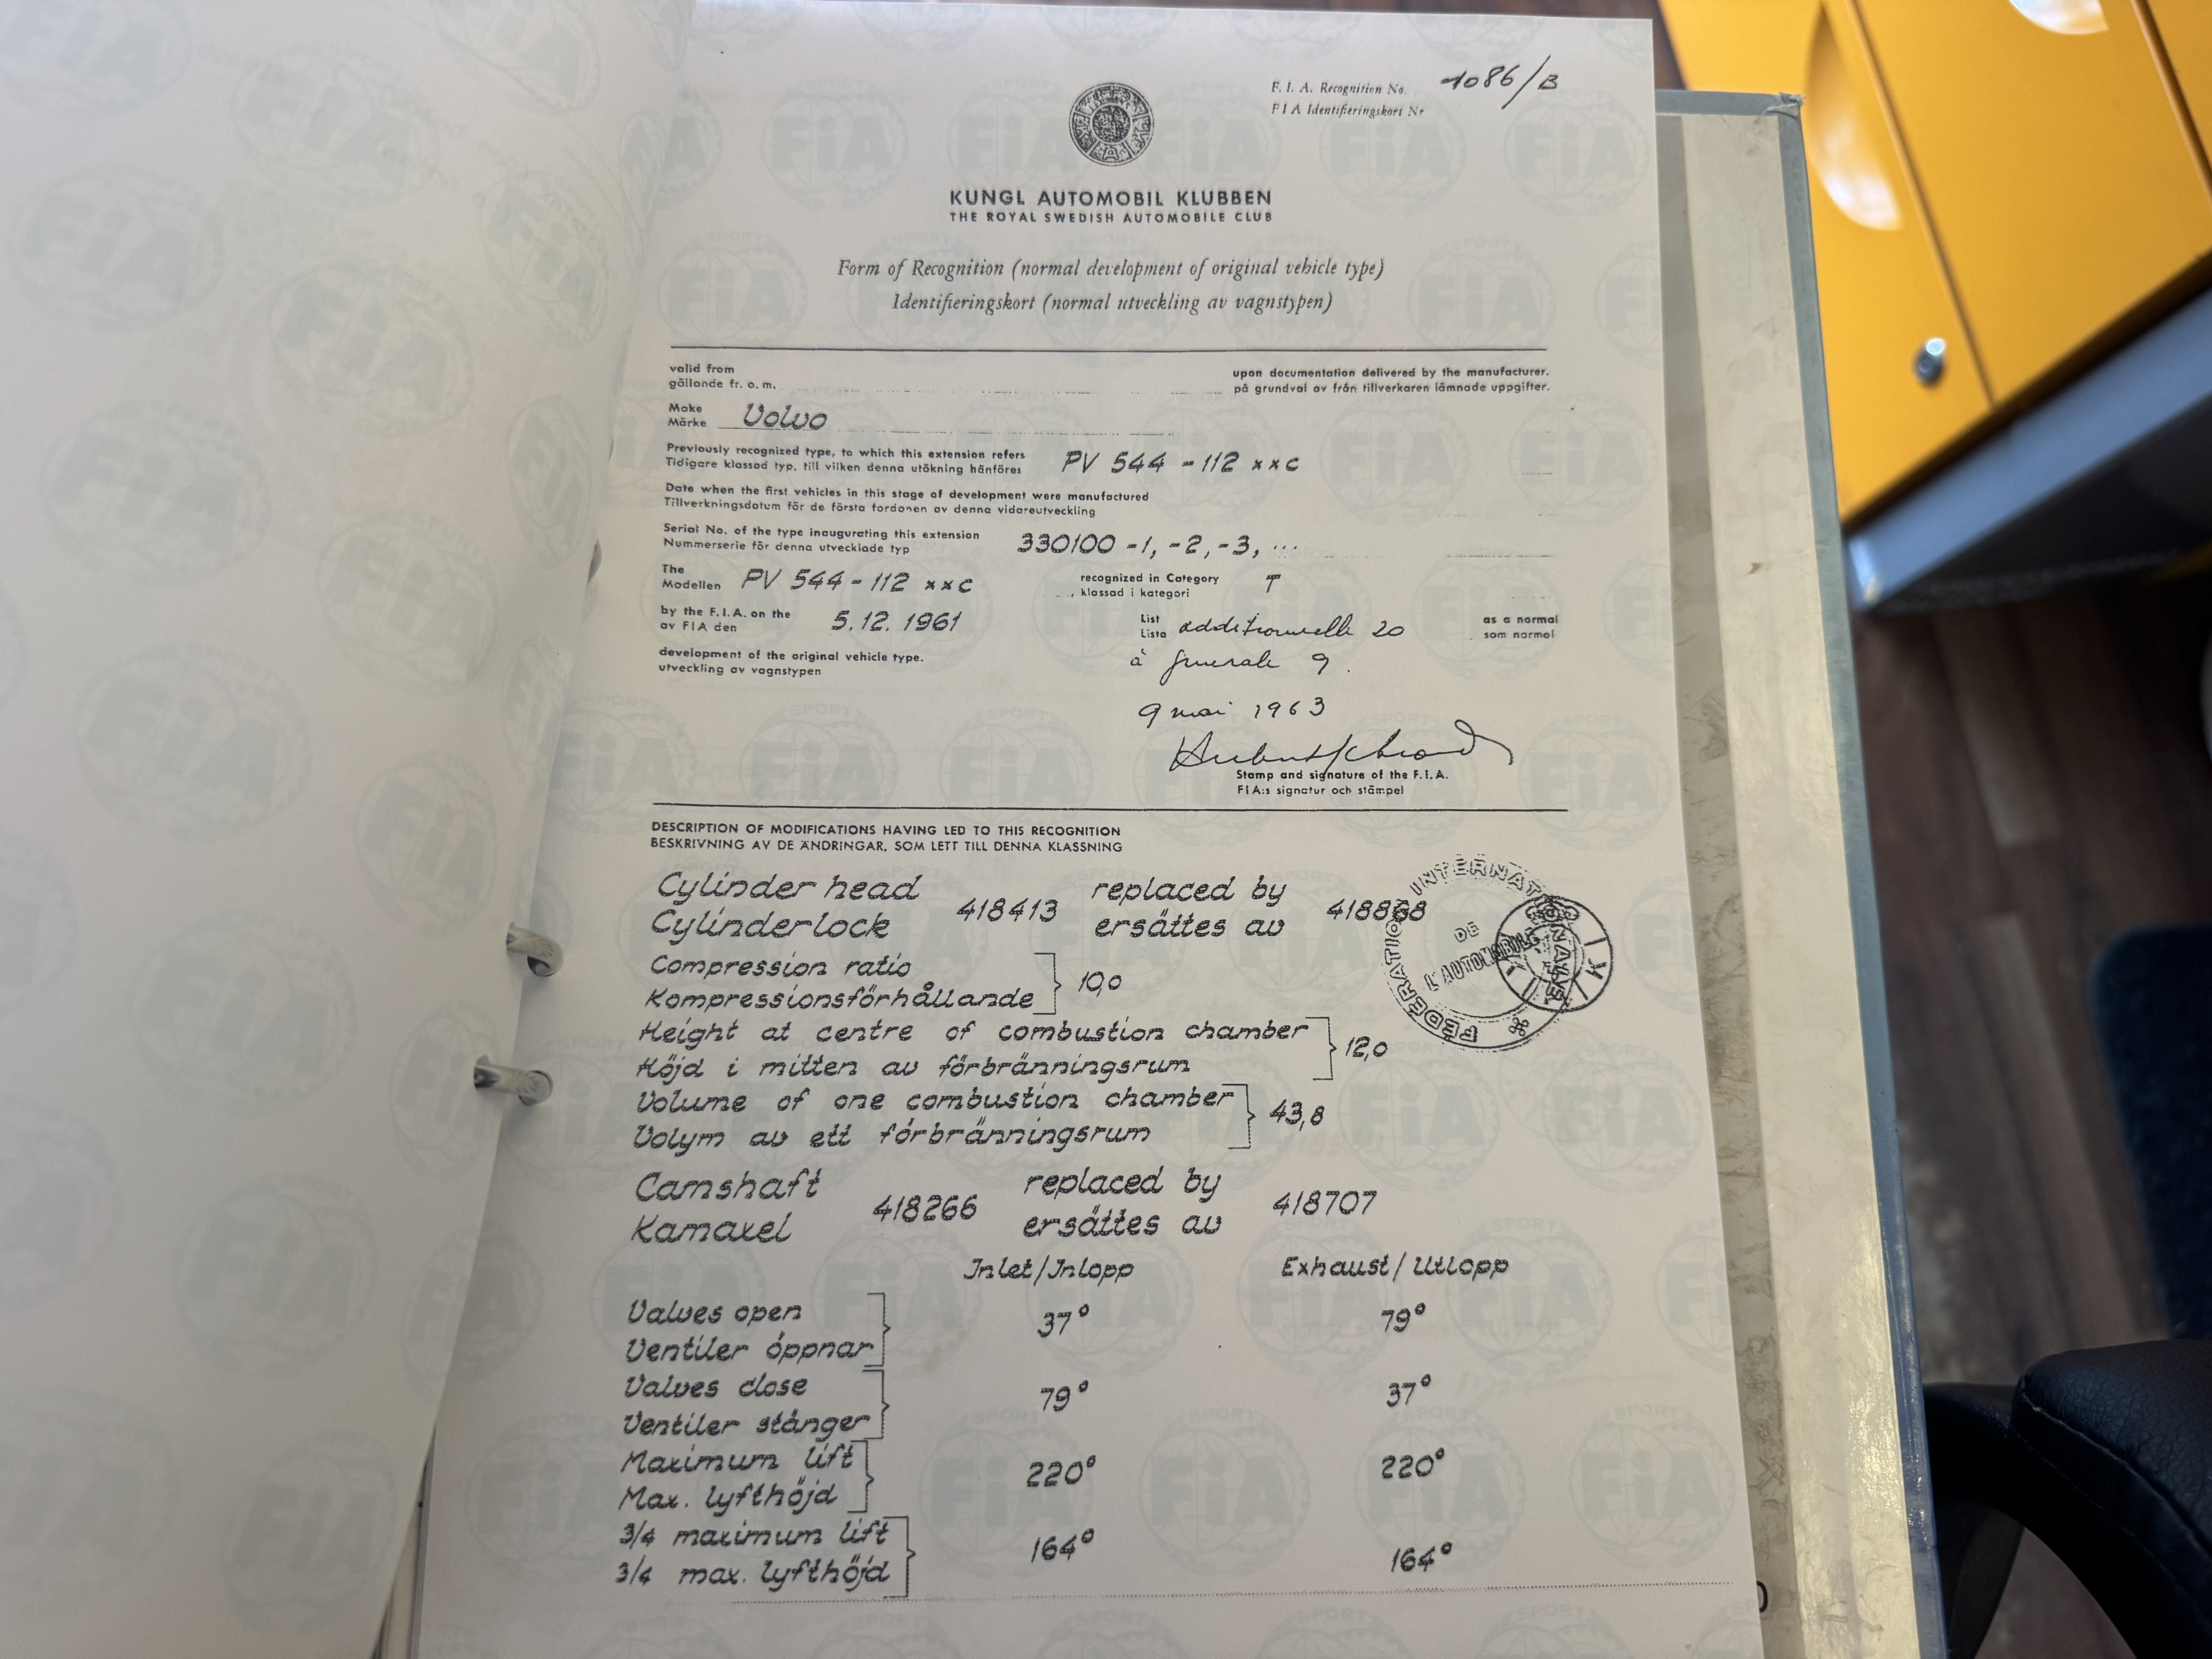 F. I. A. Recognition No. 1086/B
F I A Identifieringskort Nr
KUNGL AUTOMOBIL KLUBBEN
THE ROYAL SWEDISH AUTOMOBILE CLUB
Form of Recognition (normal development of original vehicle type)
Identifieringskort (normal utveckling av vagnstypen)
valid from
gällande fr. o. m.
upon documentation delivered by the manufacturer.
på grundval av från tillverkaren lämnade uppgifter.
Make
Märke
Volvo
Previously recognized type, to which this extension refers
Tidigare klassad typ, till vilken denna utökning hänföres
PV 544 - 112 xxc
Date when the first vehicles in this stage of development were manufactured
Tillverkningsdatum för de första fordonen av denna vidareutveckling
Serial No. of the type inaugurating this extension
Nummerserie för denna utvecklade typ
330100 -1, -2, -3, ...
The
Modellen
PV 544 - 112 xxc
recognized in Category
, klassad i kategori
T
by the F. I. A. on the
av FIA den
5. 12. 1961
List
Lista
additionnelle 20
as a normal
som normal
development of the original vehicle type.
utveckling av vagnstypen
à generale 9.
9 mai 1963
Stamp and signature of the F. I. A.
FIA:s signatur och stämpel
DESCRIPTION OF MODIFICATIONS HAVING LED TO THIS RECOGNITION
BESKRIVNING AV DE ÄNDRINGAR, SOM LETT TILL DENNA KLASSNING
FEDERATION INTERNATIONALE
DE
L'AUTOMOBILE
Cylinder head
Cylinderlock
418413
replaced by
ersättes av
418868
Compression ratio
Kompressionsförhållande
10,0
Height at centre of combustion chamber
Höjd i mitten av förbränningsrum
12,0
Volume of one combustion chamber
Volym av ett förbränningsrum
43,8
Camshaft
Kamaxel
418266
replaced by
ersättes av
418707
Inlet/Inlopp Exhaust/Utlopp
Valves open
Ventiler öppnar
37° 79°
Valves close
Ventiler stänger
79° 37°
Maximum lift
Max. lyfthöjd
220° 220°
3/4 maximum lift
3/4 max. lyfthöjd
164° 164°